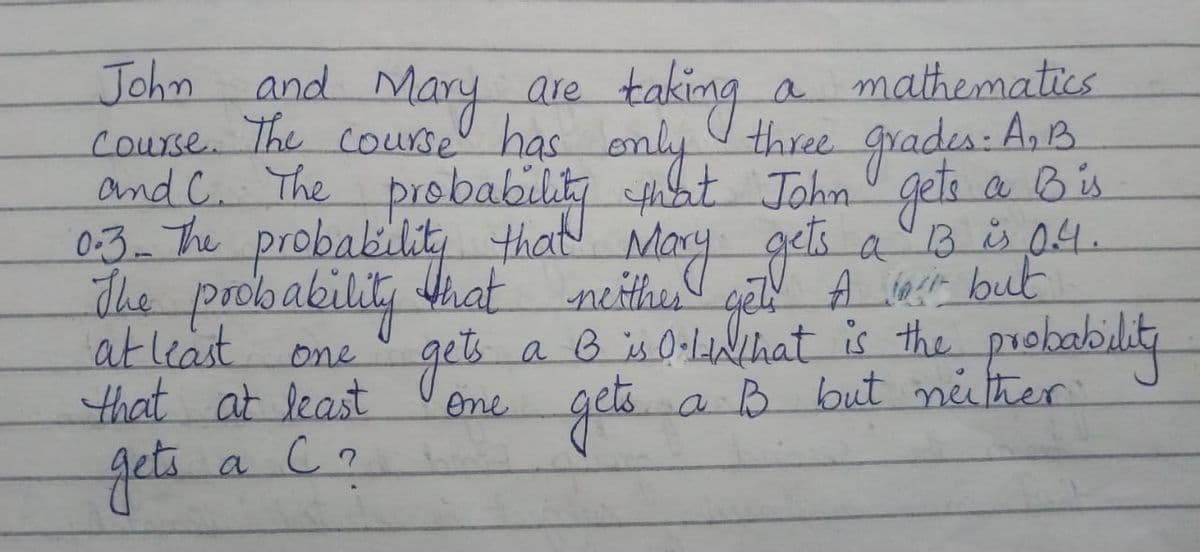 John and Mary are taking a mathematics
course. The course has only three grades: A, B
and C. The probability that John gets a B is
0.3. The probability that Mary gets a B is 0.4.
The probability that neither gets A but
at least one gets a B is 0.1. What is the probability
that at least one gets a B but neither
gets a C?